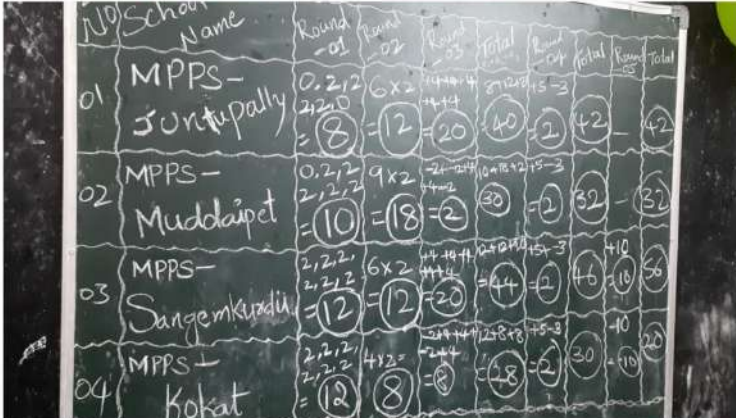 No School Name Round -01 Round -02 Round -03 Total Round -04 Total Round -05 Total
01 MPPS- Juntupally 0,2,2 2,2,0 = 8 6x2 =12 +4+4+4 +4+4 =20 8+12+20 =40 +5-3 =2 42 - 42
02 MPPS- Muddaipet 0,2,2 2,2,2 =10 9x2 =18 +4-2 =2 10+18+2 30 +5-3 =2 32 - 32
03 MPPS- Sangemkurdu 2,2,2, 2,2,2 =12 6x2 =12 +4+4+4 +4+4 =20 =44 +5-3 =2 46 +10 =10 56
04 MPPS- Kokat 2,2,2, 2,2,2 =12 4x2= 8 -2+4+4+ -2+4 =8 12+8+8 =28 +5-3 =2 30 -10 -10 20